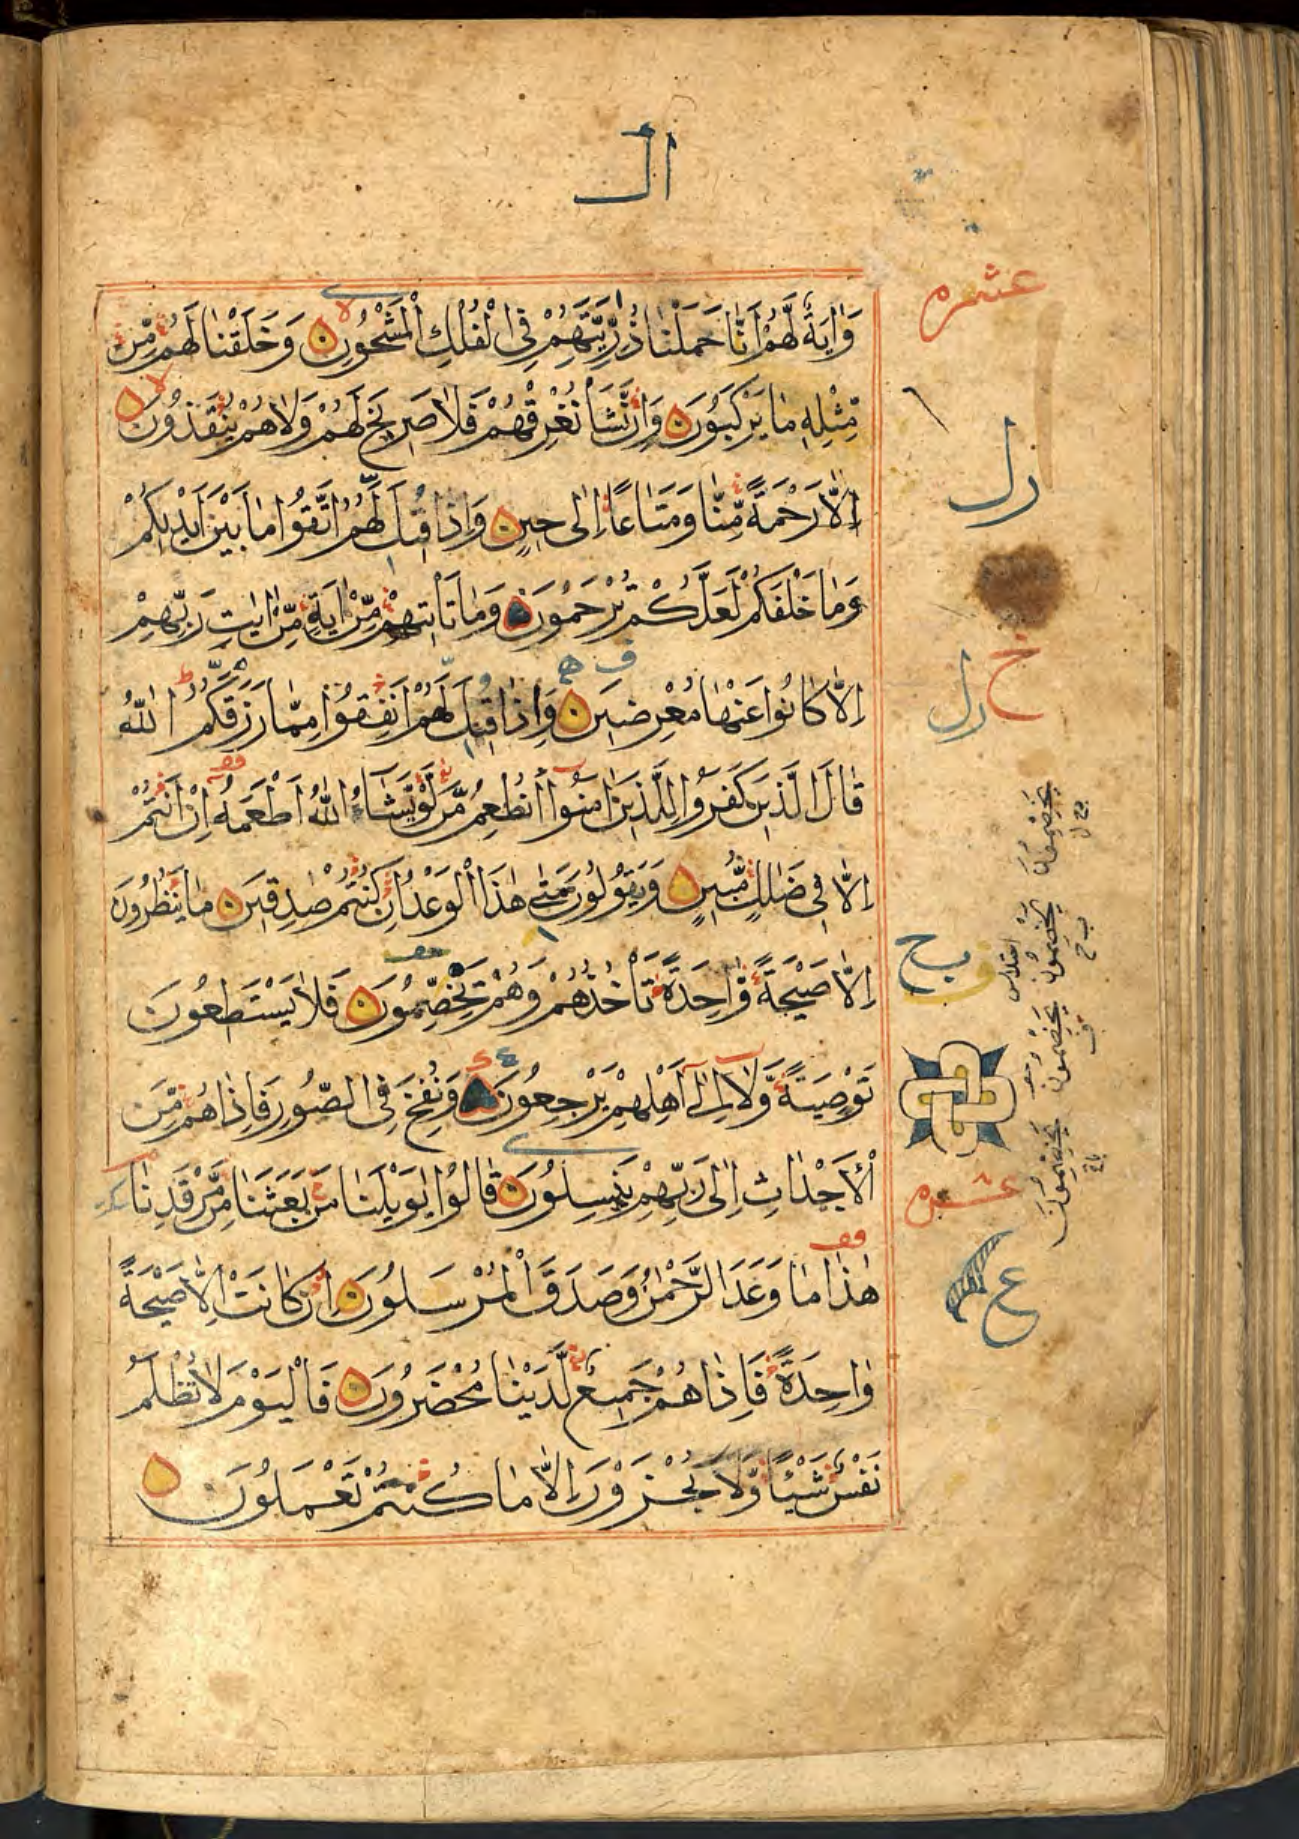 ال
وَاٰيَةٌ لَّهُمْ اَنَّا حَمَلْنَا ذُرِّيَّتَهُمْ فِى الْفُلْكِ الْمَشْحُوْنِ وَخَلَقْنَا لَهُمْ مِّنْ
مِّثْلِهٖ مَا يَرْكَبُوْنَ وَاِنْ نَّشَأْ نُغْرِقْهُمْ فَلَا صَرِيْخَ لَهُمْ وَلَا هُمْ يُنْقَذُوْنَ
اِلَّا رَحْمَةً مِّنَّا وَمَتَاعًا اِلٰى حِيْنٍ وَاِذَا قِيْلَ لَهُمُ اتَّقُوْا مَا بَيْنَ اَيْدِيْكُمْ
وَمَا خَلْفَكُمْ لَعَلَّكُمْ تُرْحَمُوْنَ وَمَا تَأْتِيْهِمْ مِّنْ اٰيَةٍ مِّنْ اٰيٰتِ رَبِّهِمْ
اِلَّا كَانُوْا عَنْهَا مُعْرِضِيْنَ وَاِذَا قِيْلَ لَهُمْ اَنْفِقُوْا مِمَّا رَزَقَكُمُ اللّٰهُ
قَالَ الَّذِيْنَ كَفَرُوْا لِلَّذِيْنَ اٰمَنُوْا اَنُطْعِمُ مَنْ لَّوْ يَشَآءُ اللّٰهُ اَطْعَمَهٗ اِنْ اَنْتُمْ
اِلَّا فِى ضَلٰلٍ مُّبِيْنٍ وَيَقُوْلُوْنَ مَتٰى هٰذَا الْوَعْدُ اِنْ كُنْتُمْ صٰدِقِيْنَ مَا يَنْظُرُوْنَ
اِلَّا صَيْحَةً وَّاحِدَةً تَأْخُذُهُمْ وَهُمْ يَخِصِّمُوْنَ فَلَا يَسْتَطِعُوْنَ
تَوْصِيَةً وَّلَا اِلٰى اَهْلِهِمْ يَرْجِعُوْنَ وَنُفِخَ فِى الصُّوْرِ فَاِذَا هُمْ مِّنَ
الْاَجْدَاثِ اِلٰى رَبِّهِمْ يَنْسِلُوْنَ قَالُوْا يٰوَيْلَنَا مَنْ بَعَثَنَا مِنْ مَّرْقَدِنَا
هٰذَا مَا وَعَدَ الرَّحْمٰنُ وَصَدَقَ الْمُرْسَلُوْنَ اِنْ كَانَتْ اِلَّا صَيْحَةً
وَاحِدَةً فَاِذَا هُمْ جَمِيْعٌ لَّدَيْنَا مُحْضَرُوْنَ فَالْيَوْمَ لَا تُظْلَمُ
نَفْسٌ شَيْئًا وَّلَا تُجْزَوْنَ اِلَّا مَا كُنْتُمْ تَعْمَلُوْنَ
ع